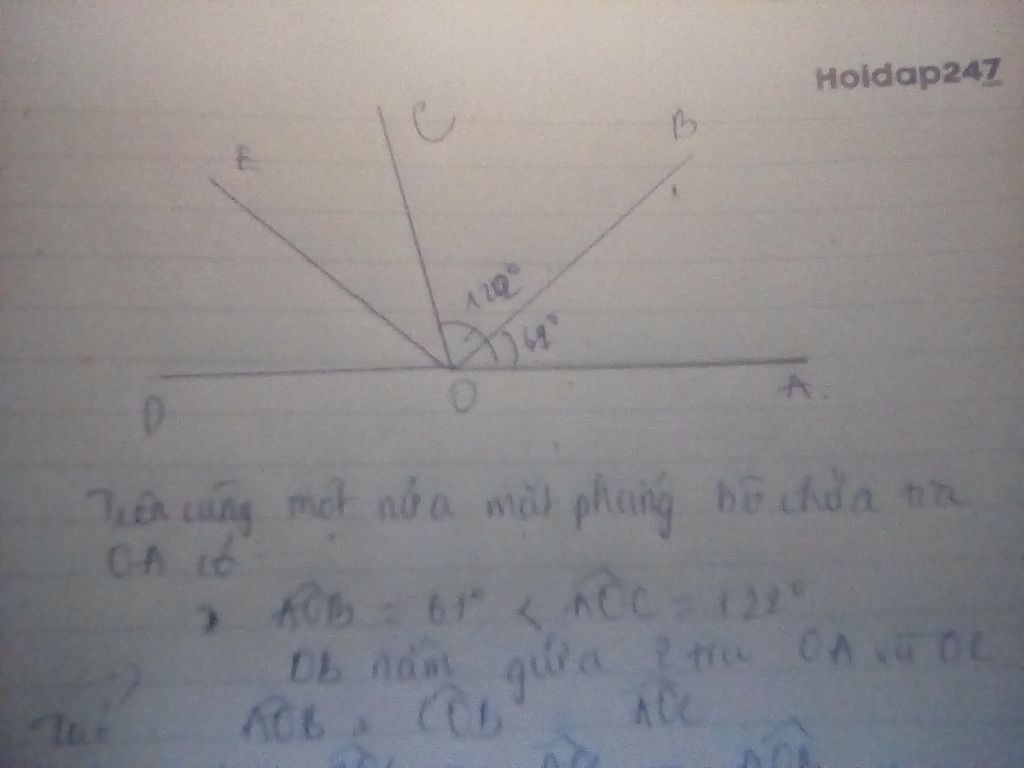 Hoidap247
C
B
E
122°
61°
D
O
A.
Trên cùng một nửa mặt phẳng bờ chứa tia
OA có
AOB = 61° < AOC = 122°
=> OB nằm giữa 2 tia OA và OC
Ta có AOB + COB = AOC